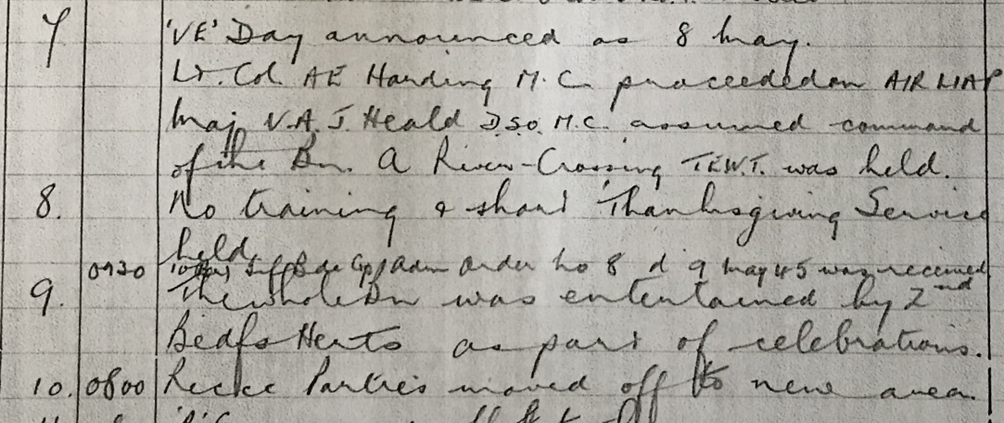 7 'VE' Day announced as 8 May.
Lt. Col AE Harding M.C. proceeded on AIR LIAP
Maj V.A.J. Heald D.S.O. M.C. assumed command
of the Bn. A River-Crossing T.E.W.T. was held.
8. No training & short Thanksgiving Service
held
0930 Inf Bde Gp Adm Order No 8 d 9 May 45 was received
9. The whole Bn was entertained by 2nd
Bedfs Herts as part of celebrations.
10. 0800 Recce Parties moved off to new area.